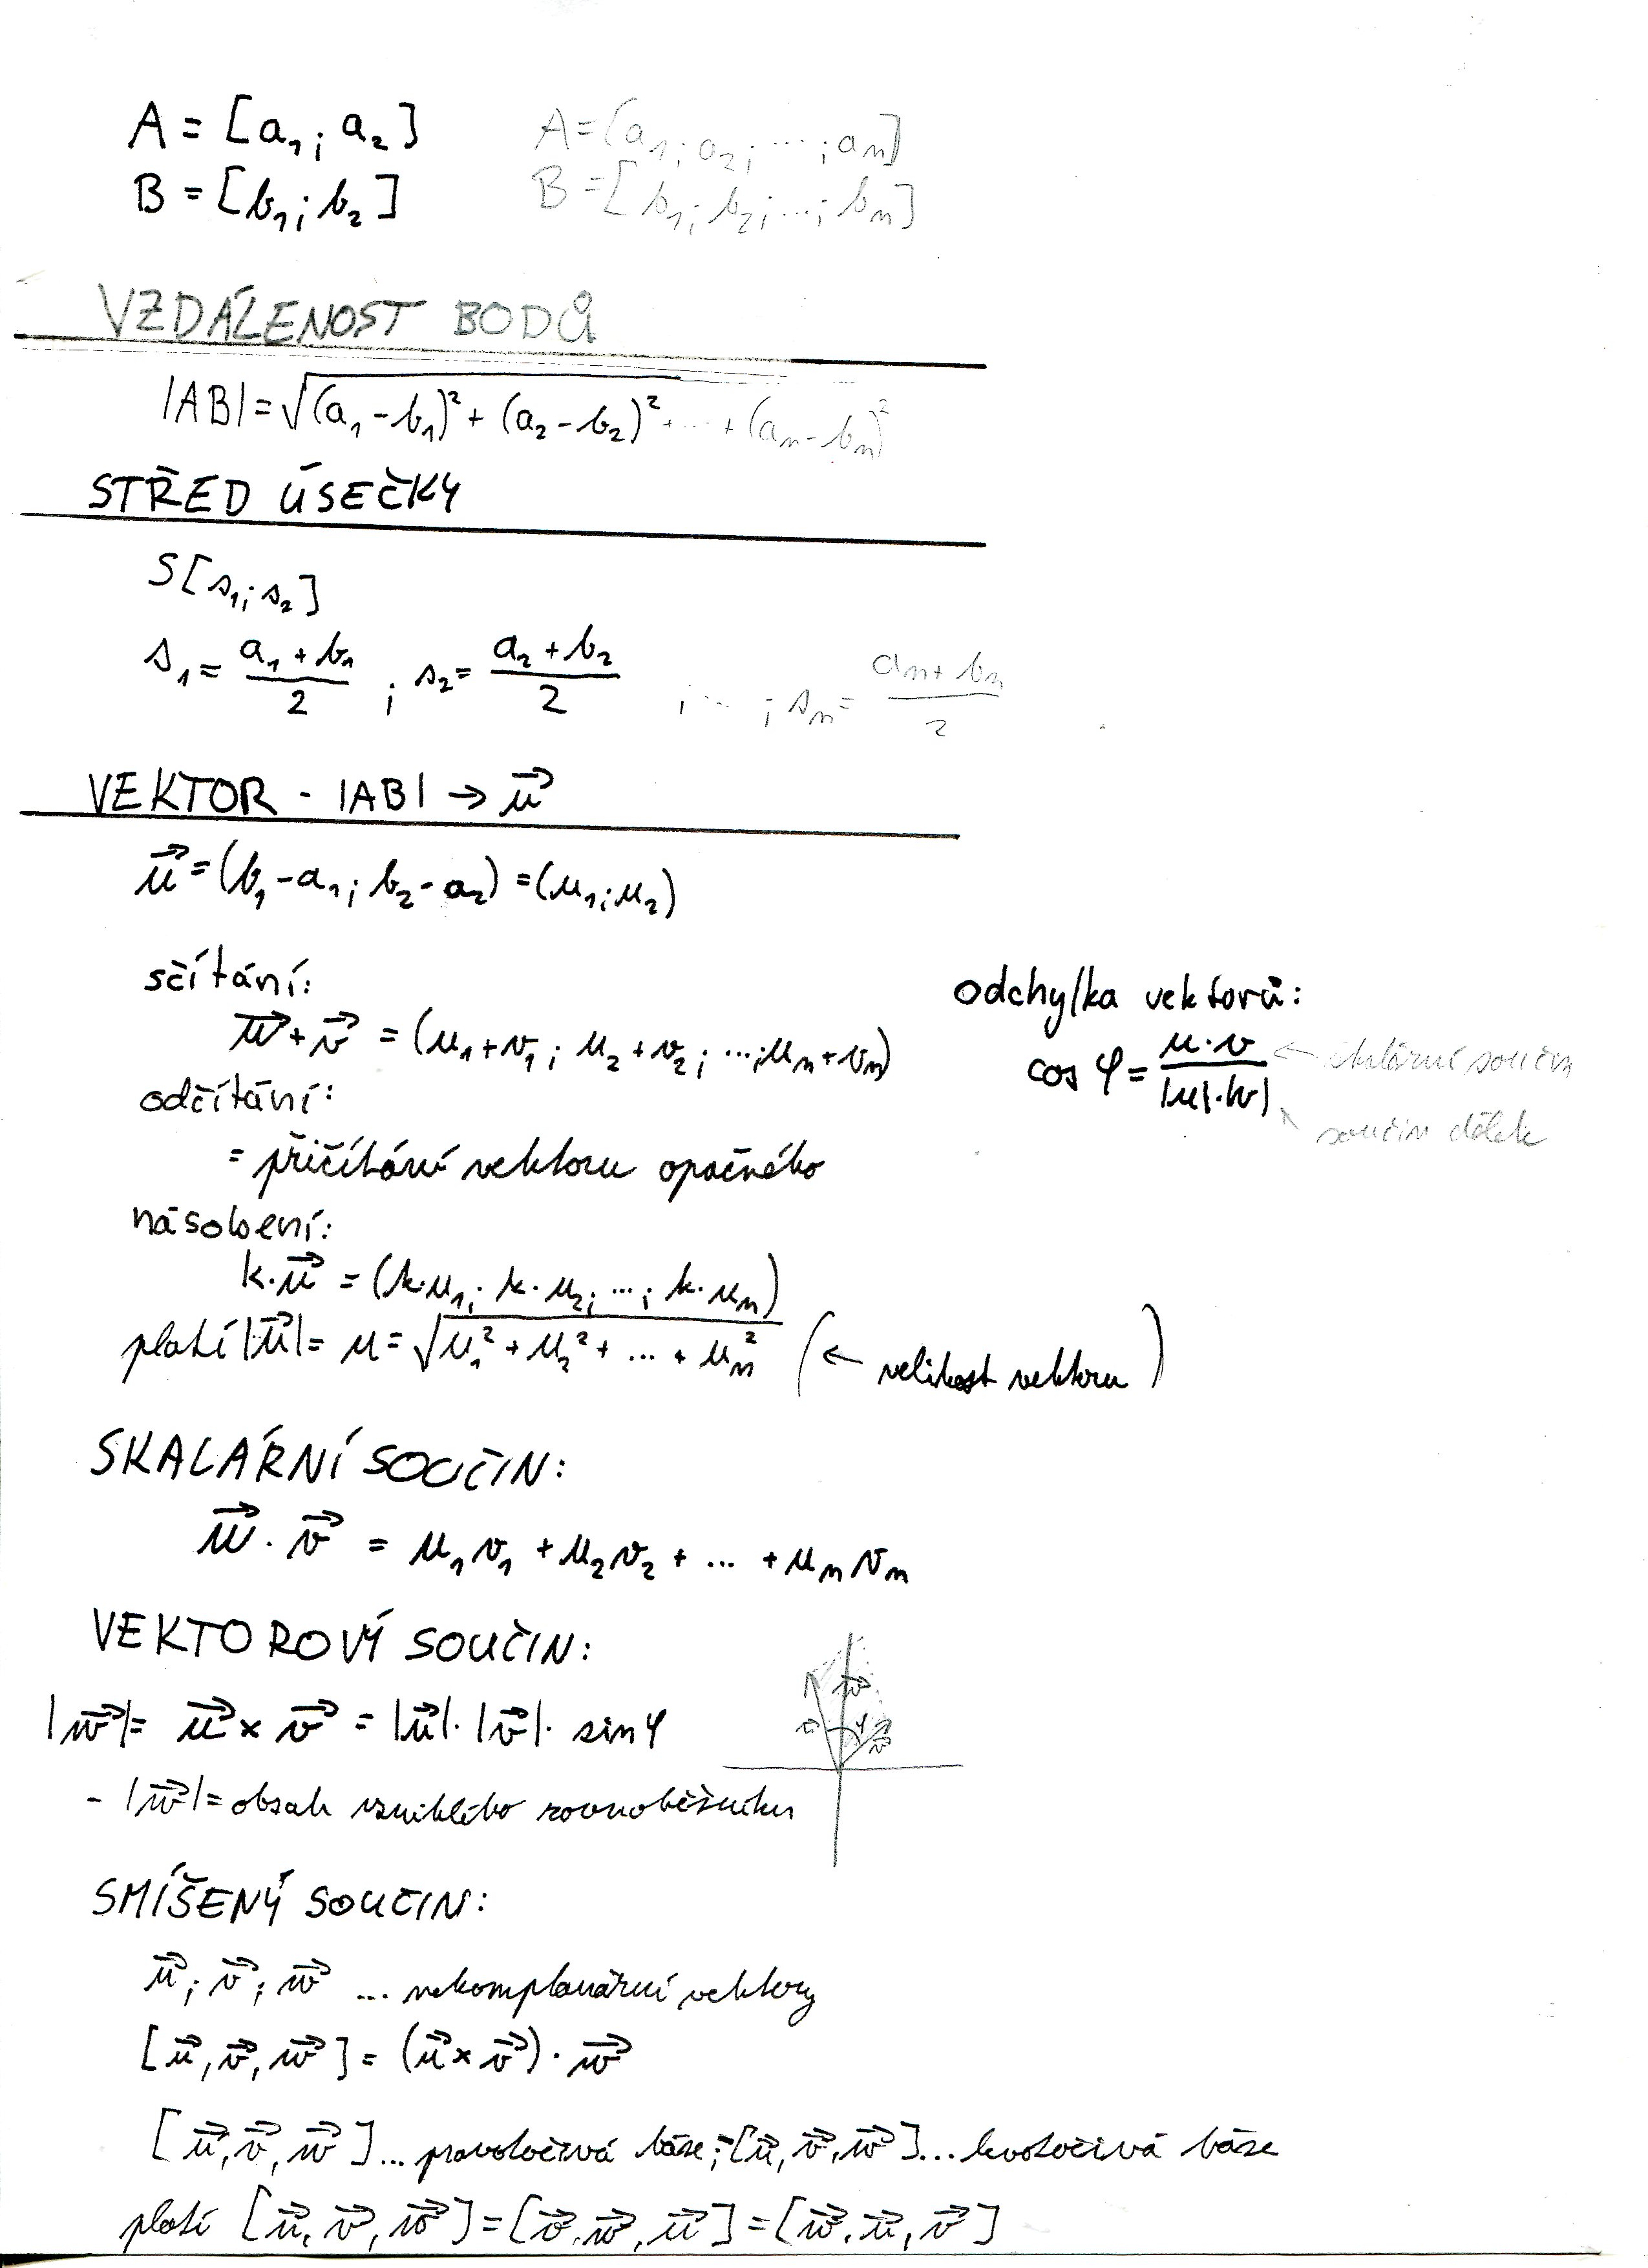 A = [a₁; a₂]   A = [a₁; a₂; ...; aₙ]
B = [b₁; b₂]   B = [b₁; b₂; ...; bₙ]
VZDÁLENOST BODŮ
|AB| = √(a₁ - b₁)² + (a₂ - b₂)² + ... + (aₙ - bₙ)²
STŘED ÚSEČKY
S[s₁; s₂]
s₁ = (a₁ + b₁)/2 ; s₂ = (a₂ + b₂)/2 ; ... ; sₙ = (aₙ + bₙ)/2
VEKTOR - |AB| → u⃗
u⃗ = (b₁ - a₁; b₂ - a₂) = (u₁; u₂)
sčítání:
u⃗ + v⃗ = (u₁ + v₁; u₂ + v₂; ...; uₙ + vₙ)
odčítání:
= přičítání vektoru opačného
násobení:
k · u⃗ = (k · u₁; k · u₂; ...; k · uₙ)
platí |u⃗| = u = √u₁² + u₂² + ... + uₙ² (← velikost vektoru)
odchylka vektorů:
cos φ = u · v / |u| · |v| ← skalární součin
součin délek
SKALÁRNÍ SOUČIN:
u⃗ · v⃗ = u₁v₁ + u₂v₂ + ... + uₙvₙ
VEKTOROVÝ SOUČIN:
|w⃗| = u⃗ × v⃗ = |u⃗| · |v⃗| · sin φ
- |w⃗| = obsah vzniklého rovnoběžníku
u⃗ w⃗ φ v⃗
SMÍŠENÝ SOUČIN:
u⃗; v⃗; w⃗ ... nekomplanární vektory
[u⃗, v⃗, w⃗] = (u⃗ × v⃗) · w⃗
[u⃗, v⃗, w⃗] ... pravotočivá báze; -[u⃗, v⃗, w⃗] ... levotočivá báze
platí [u⃗, v⃗, w⃗] = [v⃗, w⃗, u⃗] = [w⃗, u⃗, v⃗]